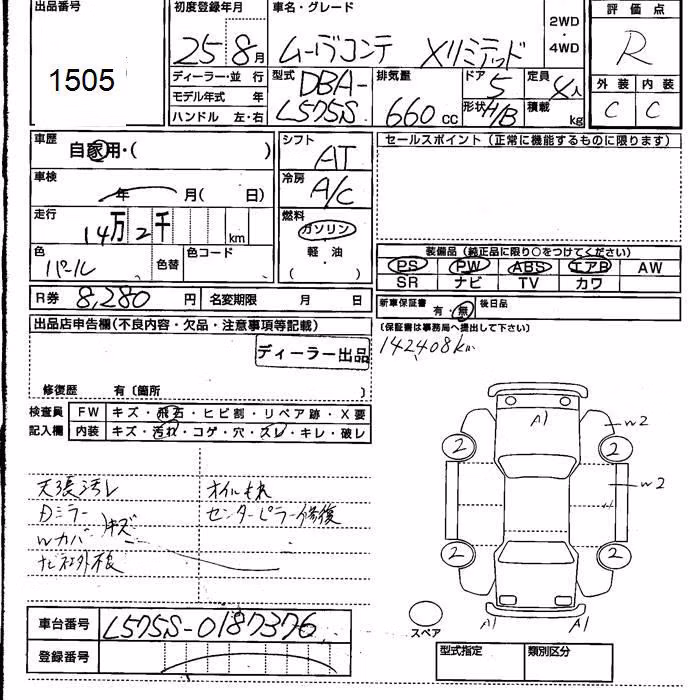 出品番号
1505
初度登録年月
25 8月
車名・グレード
ムーヴコンテ Xリミテッド
2WD
・
4WD
評価点
R
外装 内装
C C
ディーラー・並 行
モデル年式 年
ハンドル 左・右
型式
DBA-
L575S
排気量
660cc
ドア
5
形状
H/B
定員
4人
積載
kg
車歴
自家用・( )
車検
年 月( 日)
走行
14万2千 km
色
パール
色替
色コード
R券 8,280円
名変期限 月 日
シフト
AT
冷房
A/C
燃料
ガソリン
軽油
( )
セールスポイント(正常に機能するものに限ります)
装備品(純正品に限り○をつけてください)
PS PW ABS エアB AW
SR ナビ TV カワ
新車保証書 有・無
後日品
(保証書は事務局へ提出して下さい)
142408km
出品店申告欄(不良内容・欠品・注意事項等記載)
ディーラー出品
修復歴 有〔箇所 〕
検査員
記入欄
FW キズ・飛石・ヒビ割・リペア跡・X要
内装 キズ・汚れ・コゲ・穴・スレ・キレ・破レ
天張汚レ
Dミラー
Wカバー
キズ
ナビ社外相
オイルもれ
センターピラー修復
A1
W2
2
2
W2
2
2
A1
A1
スペア
車台番号 L575S-0187376
登録番号
型式指定
類別区分